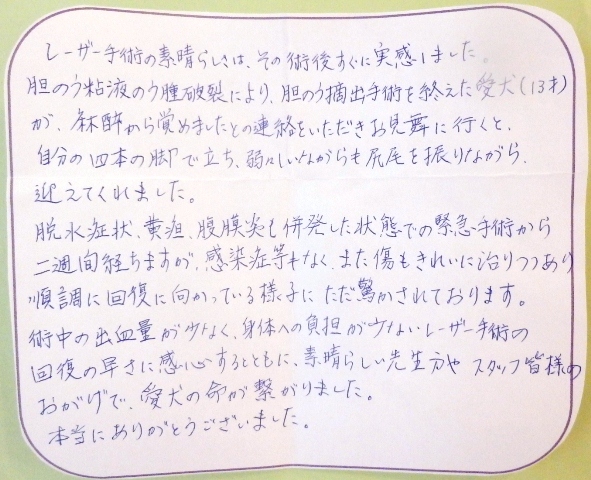 レーザー手術の素晴らしさは、その術後すぐに実感しました。
胆のう粘液のう腫破裂により、胆のう摘出手術を終えた愛犬(13才)
が、麻酔から覚めましたとの連絡をいただきお見舞に行くと、
自分の四本の脚で立ち、弱々しいながらも尻尾を振りながら、
迎えてくれました。
脱水症状、黄疸、腹膜炎も併発した状態での緊急手術から
二週間経ちますが、感染症等もなく、また傷もきれいに治りつつあり
順調に回復に向かっている様子にただ驚かされております。
術中の出血量が少なく、身体への負担が少ないレーザー手術の
回復の早さに感心するとともに、素晴らしい先生方やスタッフ皆様の
おかげで、愛犬の命が繋がりました。
本当にありがとうございました。